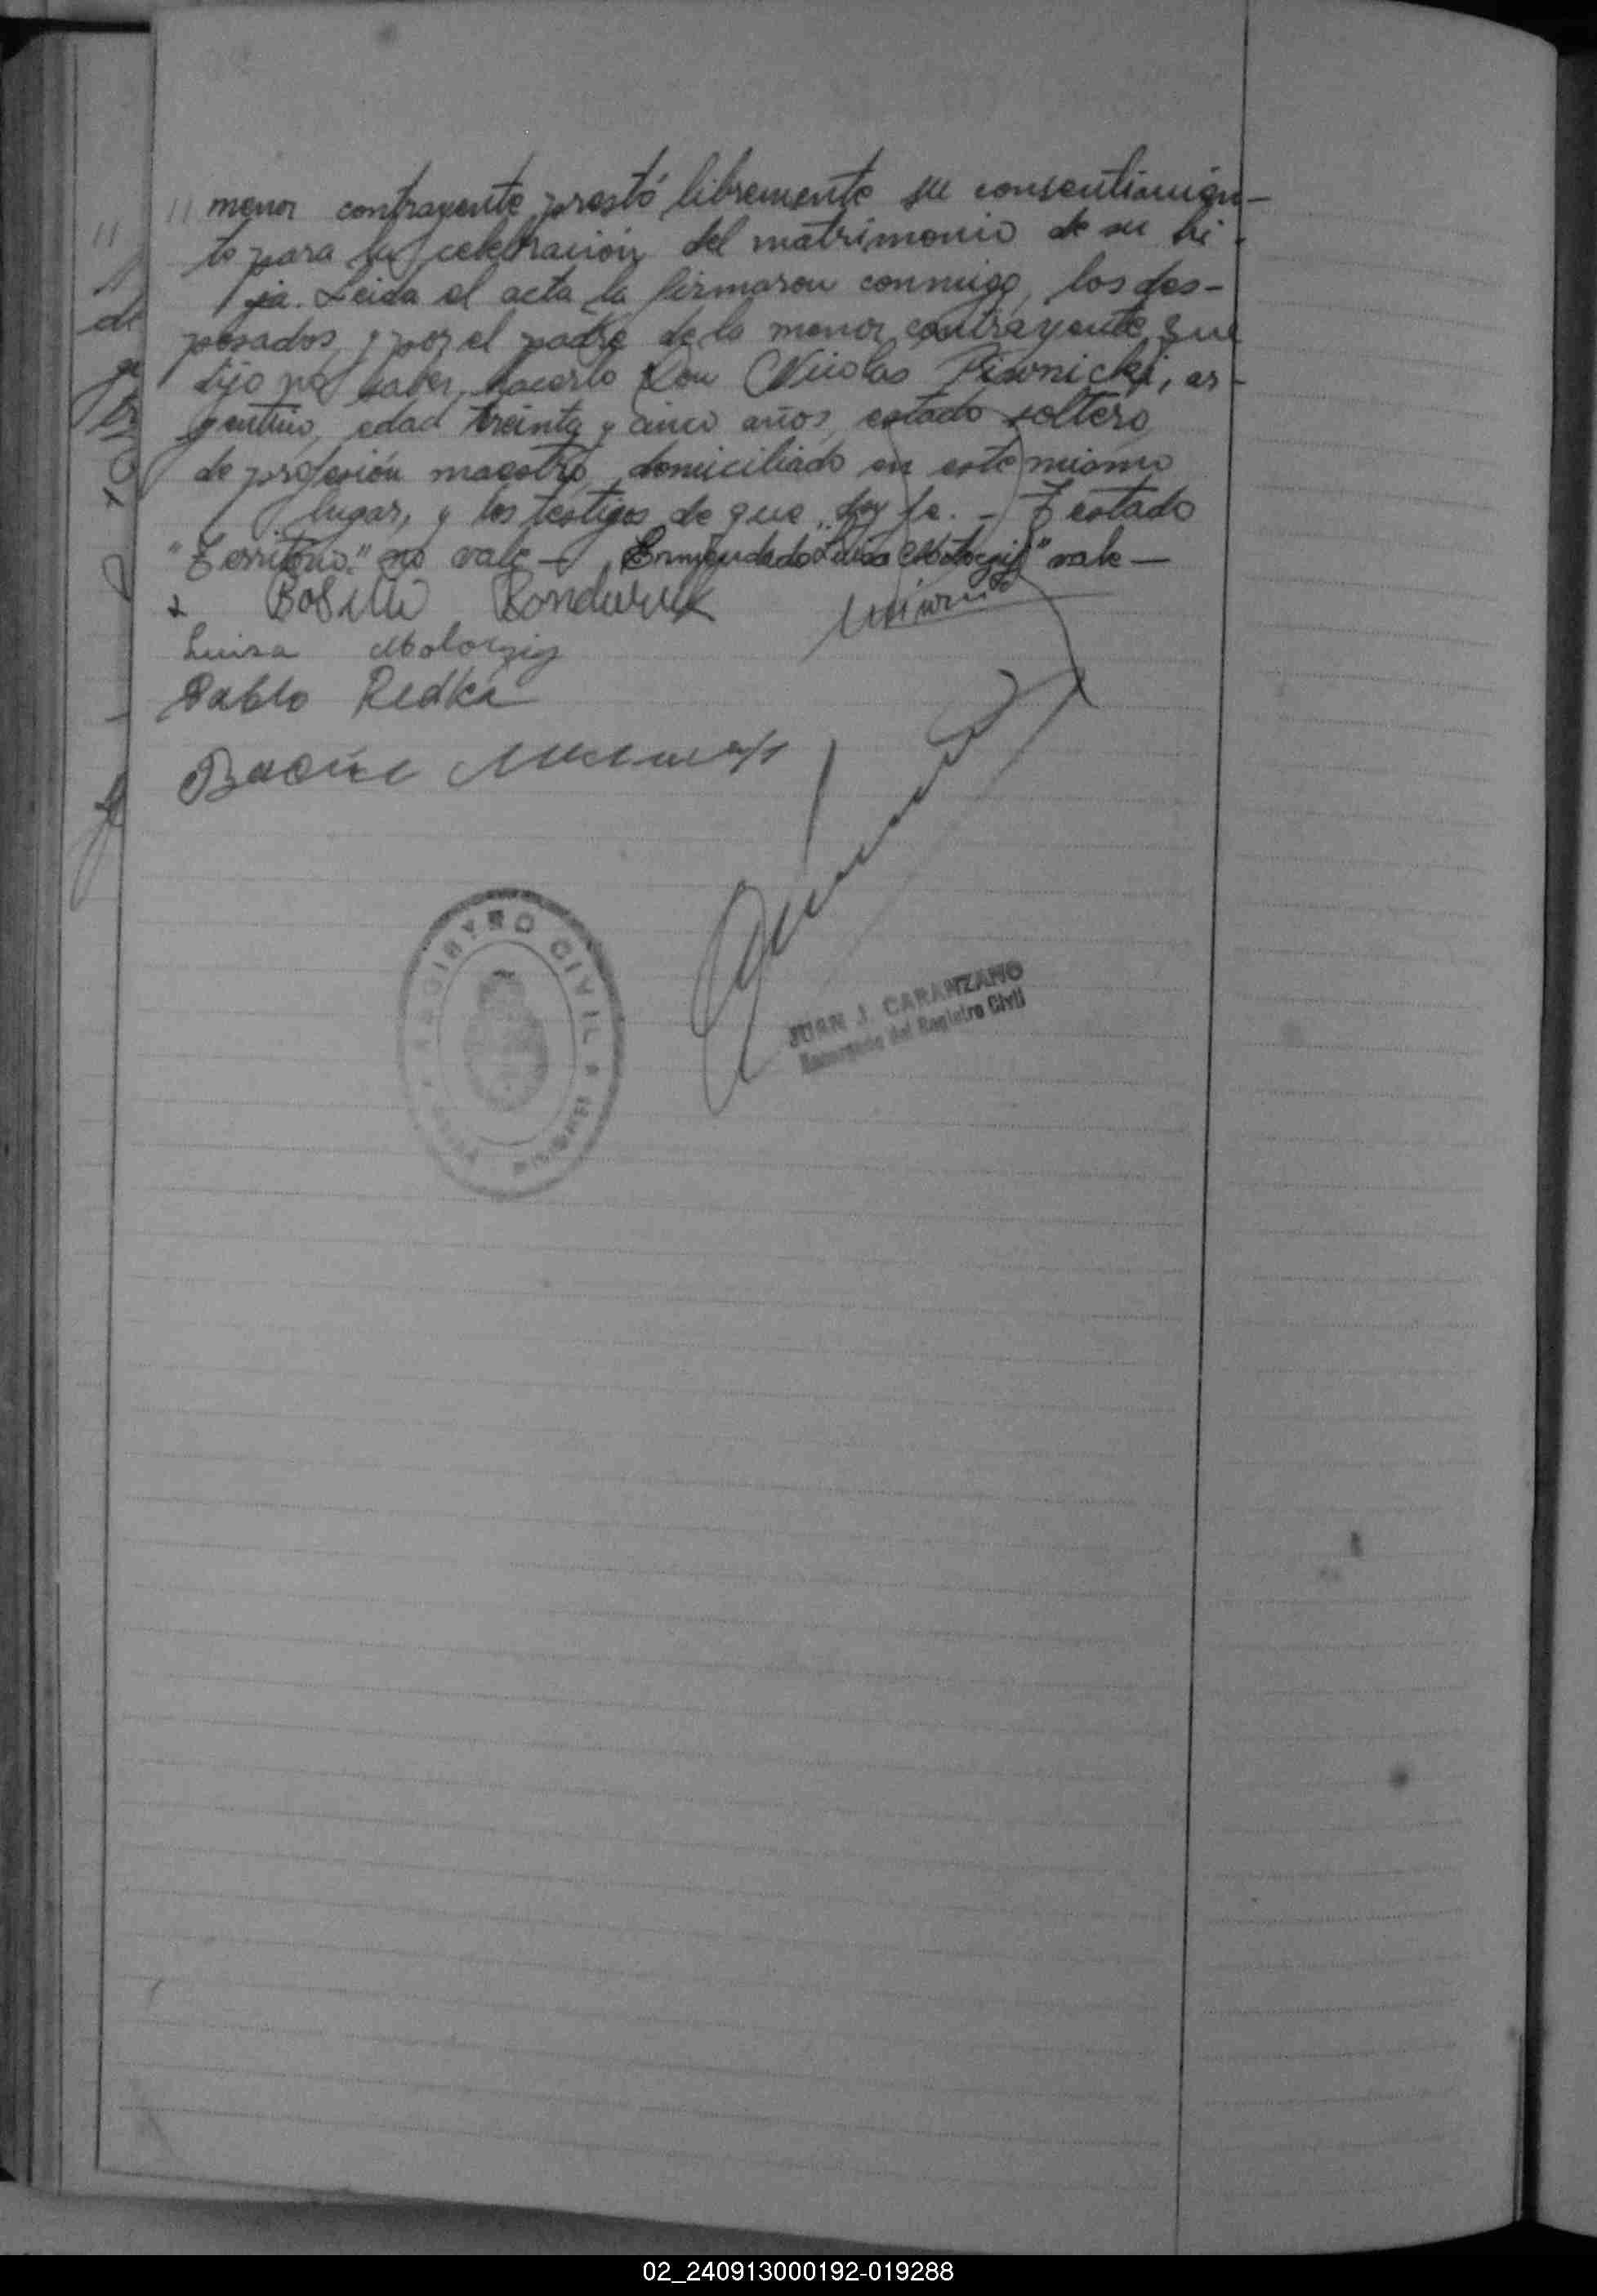 // menor contrayente prestó libremente su consentimien-
to para la celebración del matrimonio de su hi-
ja. Leida el acta la firmaron conmigo, los des-
posados, y por el padre de la menor contrayente que
dijo no saber hacerlo Don Nicolas Piwnicki, ar-
gentino, edad treinta y cinco años, estado soltero,
de profesión maestro, domiciliado en este mismo
lugar, y los testigos de que doy fe. - Testado
"Territorio" no vale - Enmendado "Luisa Molorzig" vale -
Bosilio Konduruk
Luisa Molorzig
Pablo Redka
REGISTRO CIVIL
JUAN J. CARANZANO
Encargado del Registro Civil
02_240913000192-019288